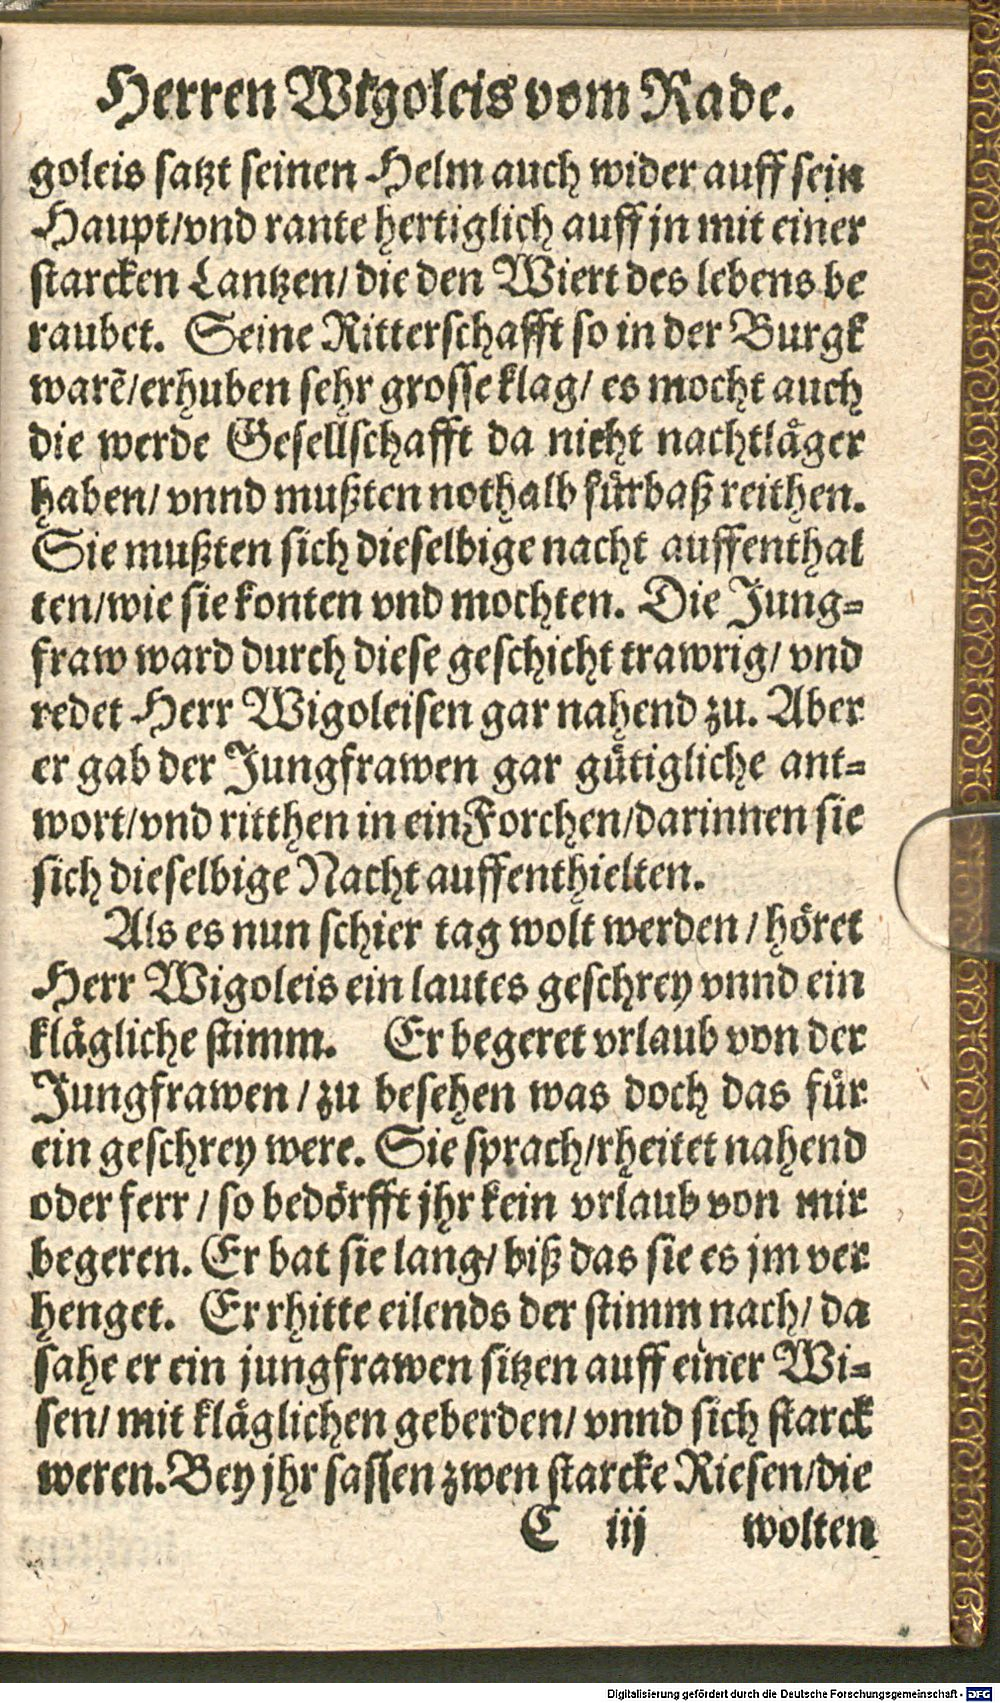 Herren Wigoleis vom Rade.
goleis satzt seinen Helm auch wider auff sein
Haupt/vnd rante hertiglich auff jn mit einer
starcken Lantzen/die den Wiert des lebens be
raubet. Seine Ritterschafft so in der Burgk
warẽ/erhuben sehr grosse klag/ es mocht auch
die werde Gesellschafft da nicht nachtläger
haben/ vnnd mußten nothalb fürbaß reithen.
Sie mußten sich dieselbige nacht auffenthal
ten/wie sie konten vnd mochten. Die Jung-
fraw ward durch diese geschicht trawrig/ vnd
redet Herr Wigoleisen gar nahend zu. Aber
er gab der Jungfrawen gar gütigliche ant-
wort/vnd ritthen in ein Forchen/darinnen sie
sich dieselbige Nacht auffenthielten.
Als es nun schier tag wolt werden/höret
Herr Wigoleis ein lautes geschrey vnnd ein
klägliche stimm. Er begeret vrlaub von der
Jungfrawen/zu besehen was doch das für
ein geschrey were. Sie sprach/rheitet nahend
oder ferr/so bedörfft jhr kein vrlaub von mir
begeren. Er bat sie lang/ biß das sie es jm ver
henget. Er rhitte eilends der stimm nach/ da
sahe er ein jungfrawen sitzen auff einer Wi-
sen/ mit kläglichen geberden/ vnnd sich starck
weren. Bey jhr sassen zwen starcke Riesen/die
C iij wolten
Digitalisierung gefördert durch die Deutsche Forschungsgemeinschaft - DFG